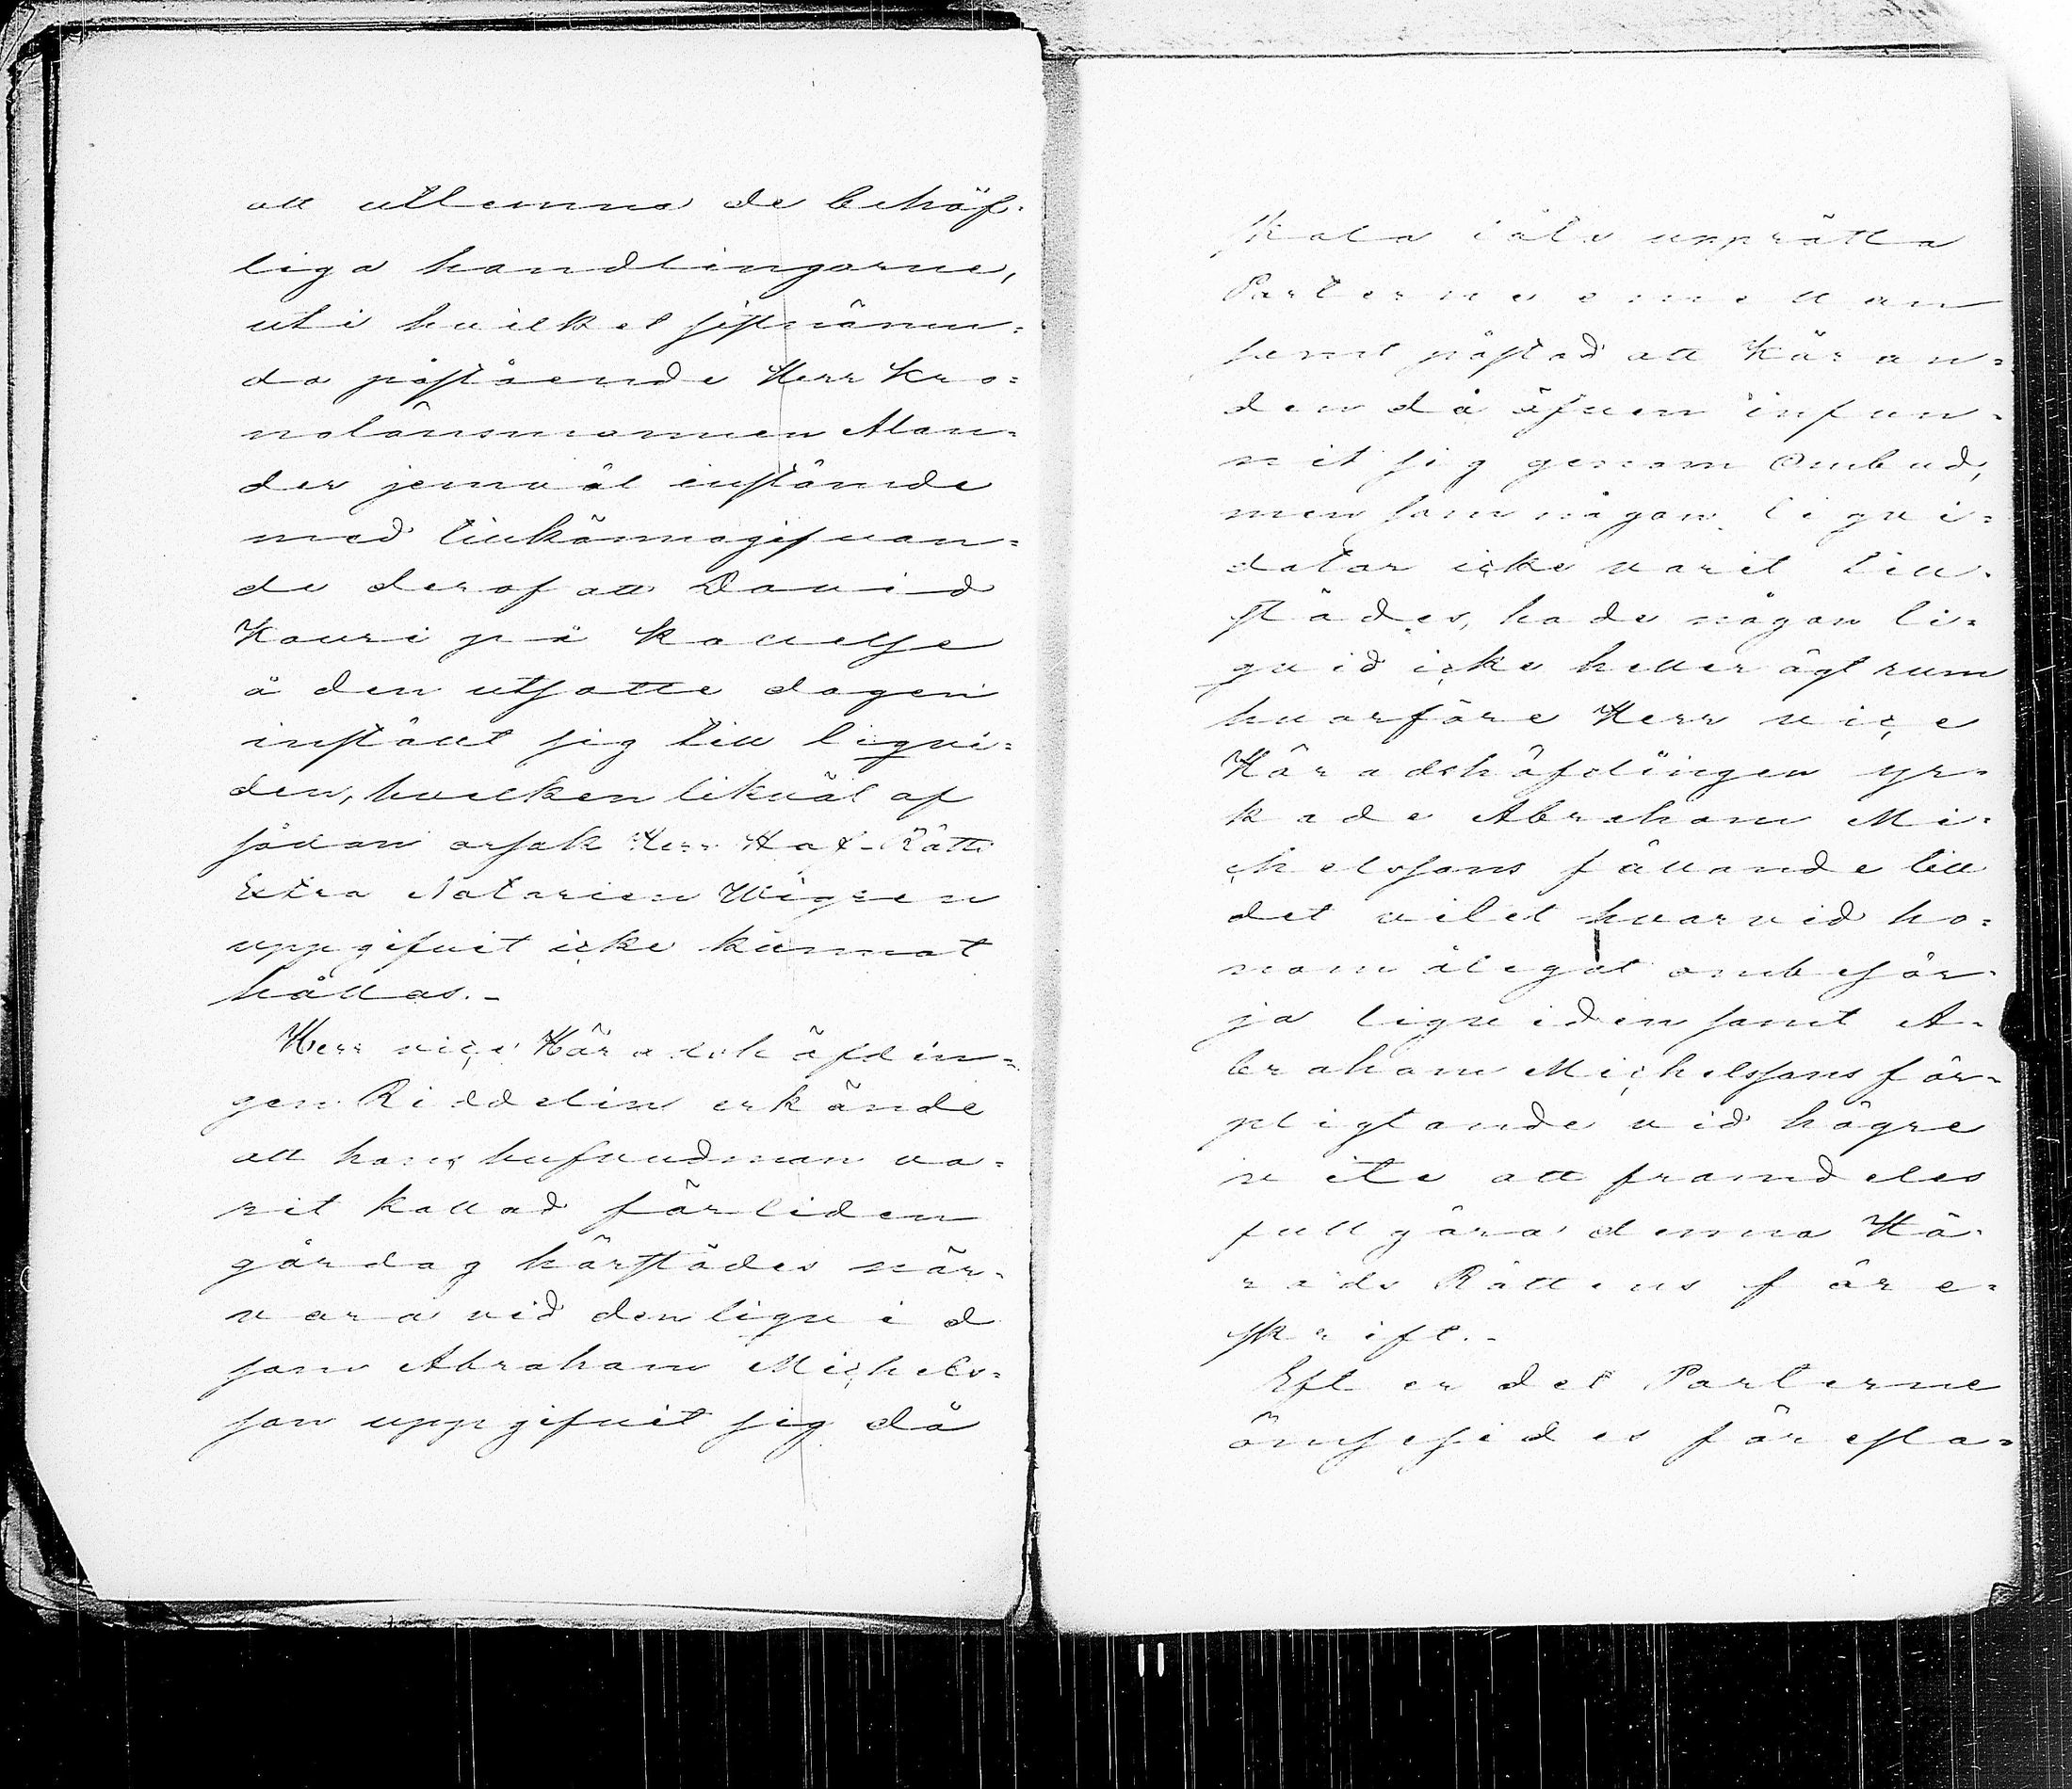 att utlemna de behöf-
liga handlingarne,
uti hvilket sistnämn-
da påstående Herr Kro-
nolänsmannen Alan-
der jemväl instämde
med tillkännagifvan-
de deraf att David
Kauri på kallelse
å den utsatte dagen
inställt sig till liqui-
den, hvilken likväl af
sådan orsak Herr Hof-Rätts
Extra Notarien Wigren
uppgifvit icke kunnat
hållas. -
Herr vice Häradshöfdin-
gen Riddelin erkände
att hans hufvudman va-
rit kallad förliden
gårdag härstädes när-
vara vid den liquid
som Abraham Michels-
son uppgifvit sig då
skola låta upprätta
Parterne emellan
samt påstod att Käran-
den då äfven infun-
nit sig genom Ombud,
men som någon liqui-
dator icke varit till-
städes, hade någon li-
quid icke heller ägt rum
hvarföre Herr vice
Häradshöfdingen yr-
kade Abraham Mi-
chelssons fällande till
det vitet hvarvid ho-
nom ålegat ombesör-
ja liquiden samt A-
braham Michelssons för-
pligtande vid högre
vite att framdeles
fullgöra denna Hä-
rads Rättens före-
skrift. -
Efter det Parterne
ömsesides föresla-